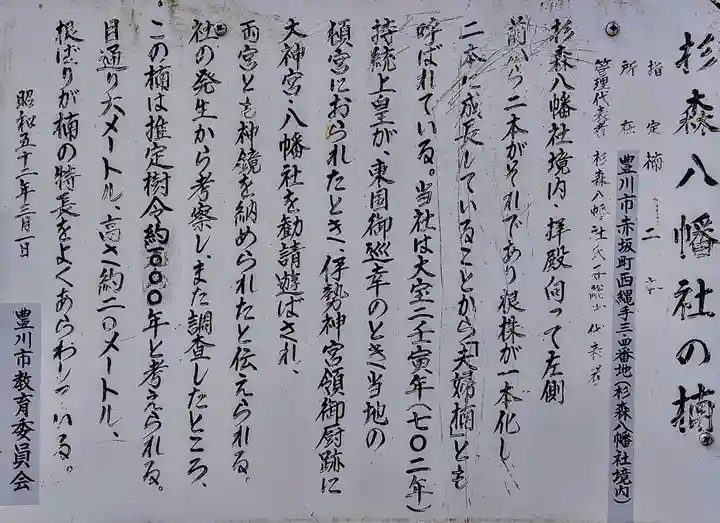 杉森八幡社の楠
指定 楠二本
所在 豊川市赤坂町西縄手三・四番地(杉森八幡社境内)
管理代表者 杉森八幡社氏子総代代表者
杉森八幡社境内・拝殿向って左側
前方の二本がそれであり根株が一本化し
二本に成長していることから「夫婦楠」とも
呼ばれている。当社は大宝二壬寅年(七〇二年)
持統上皇が、東国御巡幸のとき、当地の
頓宮におられたとき、伊勢神宮領御厨跡に
大神宮・八幡社を勧請遊ばされ、
両宮とも神鏡を納められたと伝えられる。
社の発生から考察し、また調査したところ、
この楠は推定樹令約一〇〇〇年と考えられる。
目通り六メートル、高さ約二〇メートル、
根ばりが楠の特長をよくあらわしている。
昭和五十二年三月一日
豊川市教育委員会